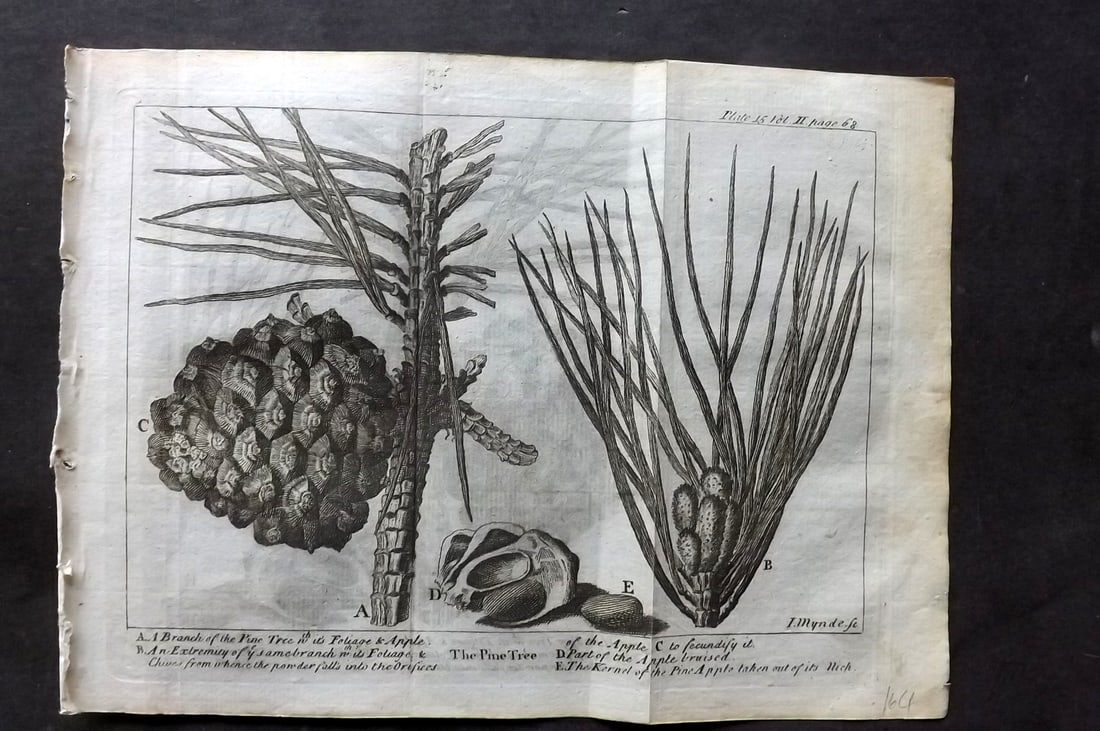 Plate 15 Vol II page 68
C
A
D
E
B
I. Mynde. sc
A. A Branch of the Pine Tree wth its Foliage & Apple.
B. An Extremity of ye same branch wth its Foliage, &
Chives from whence the powder falls into the Orifices
The Pine Tree
of the Apple C to fecundify it.
D. Part of the Apple bruised.
E. The Kernel of the Pine Apple taken out of its Nich.